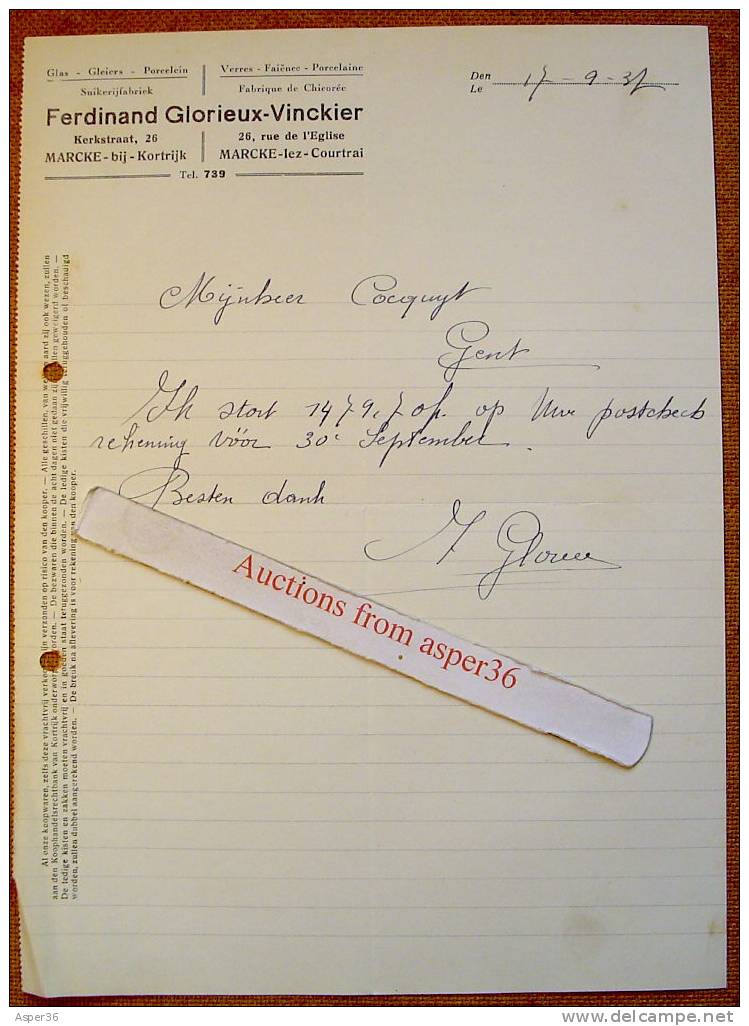 Glas - Gleiers - Porcelein
Suikerijfabriek
Verres - Faiënce - Porcelaine
Fabrique de Chicorée
Ferdinand Glorieux-Vinckier
Kerkstraat, 26
MARCKE-bij-Kortrijk
26, rue de l'Eglise
MARCKE-lez-Courtrai
Tel. 739
Den
Le
17-9-37
Mijnheer Cocquyt
Gent
Ik stort op Uwe postcheck
rekening vóór 30e September.
Besten dank
Al onze koopwaren, zelfs deze vrachtvrij verzonden op risico van den kooper. — Alle geschillen, van aard zij ook wezen, zullen
aan den Koophandelsrechtbank van Kortrijk — De bezwaren die binnen de acht dagen niet gedaan geweigerd worden. —
De ledige kisten en zakken moeten vrachtvrij en in goeden staat teruggezonden worden. — De ledige kisten die vrijwillig teruggehouden of beschadigd
worden, zullen dubbel aangerekend worden. — De breuk na aflevering is voor rekening van den kooper.
Auctions from asper36
Asper36
www.delcampe.net